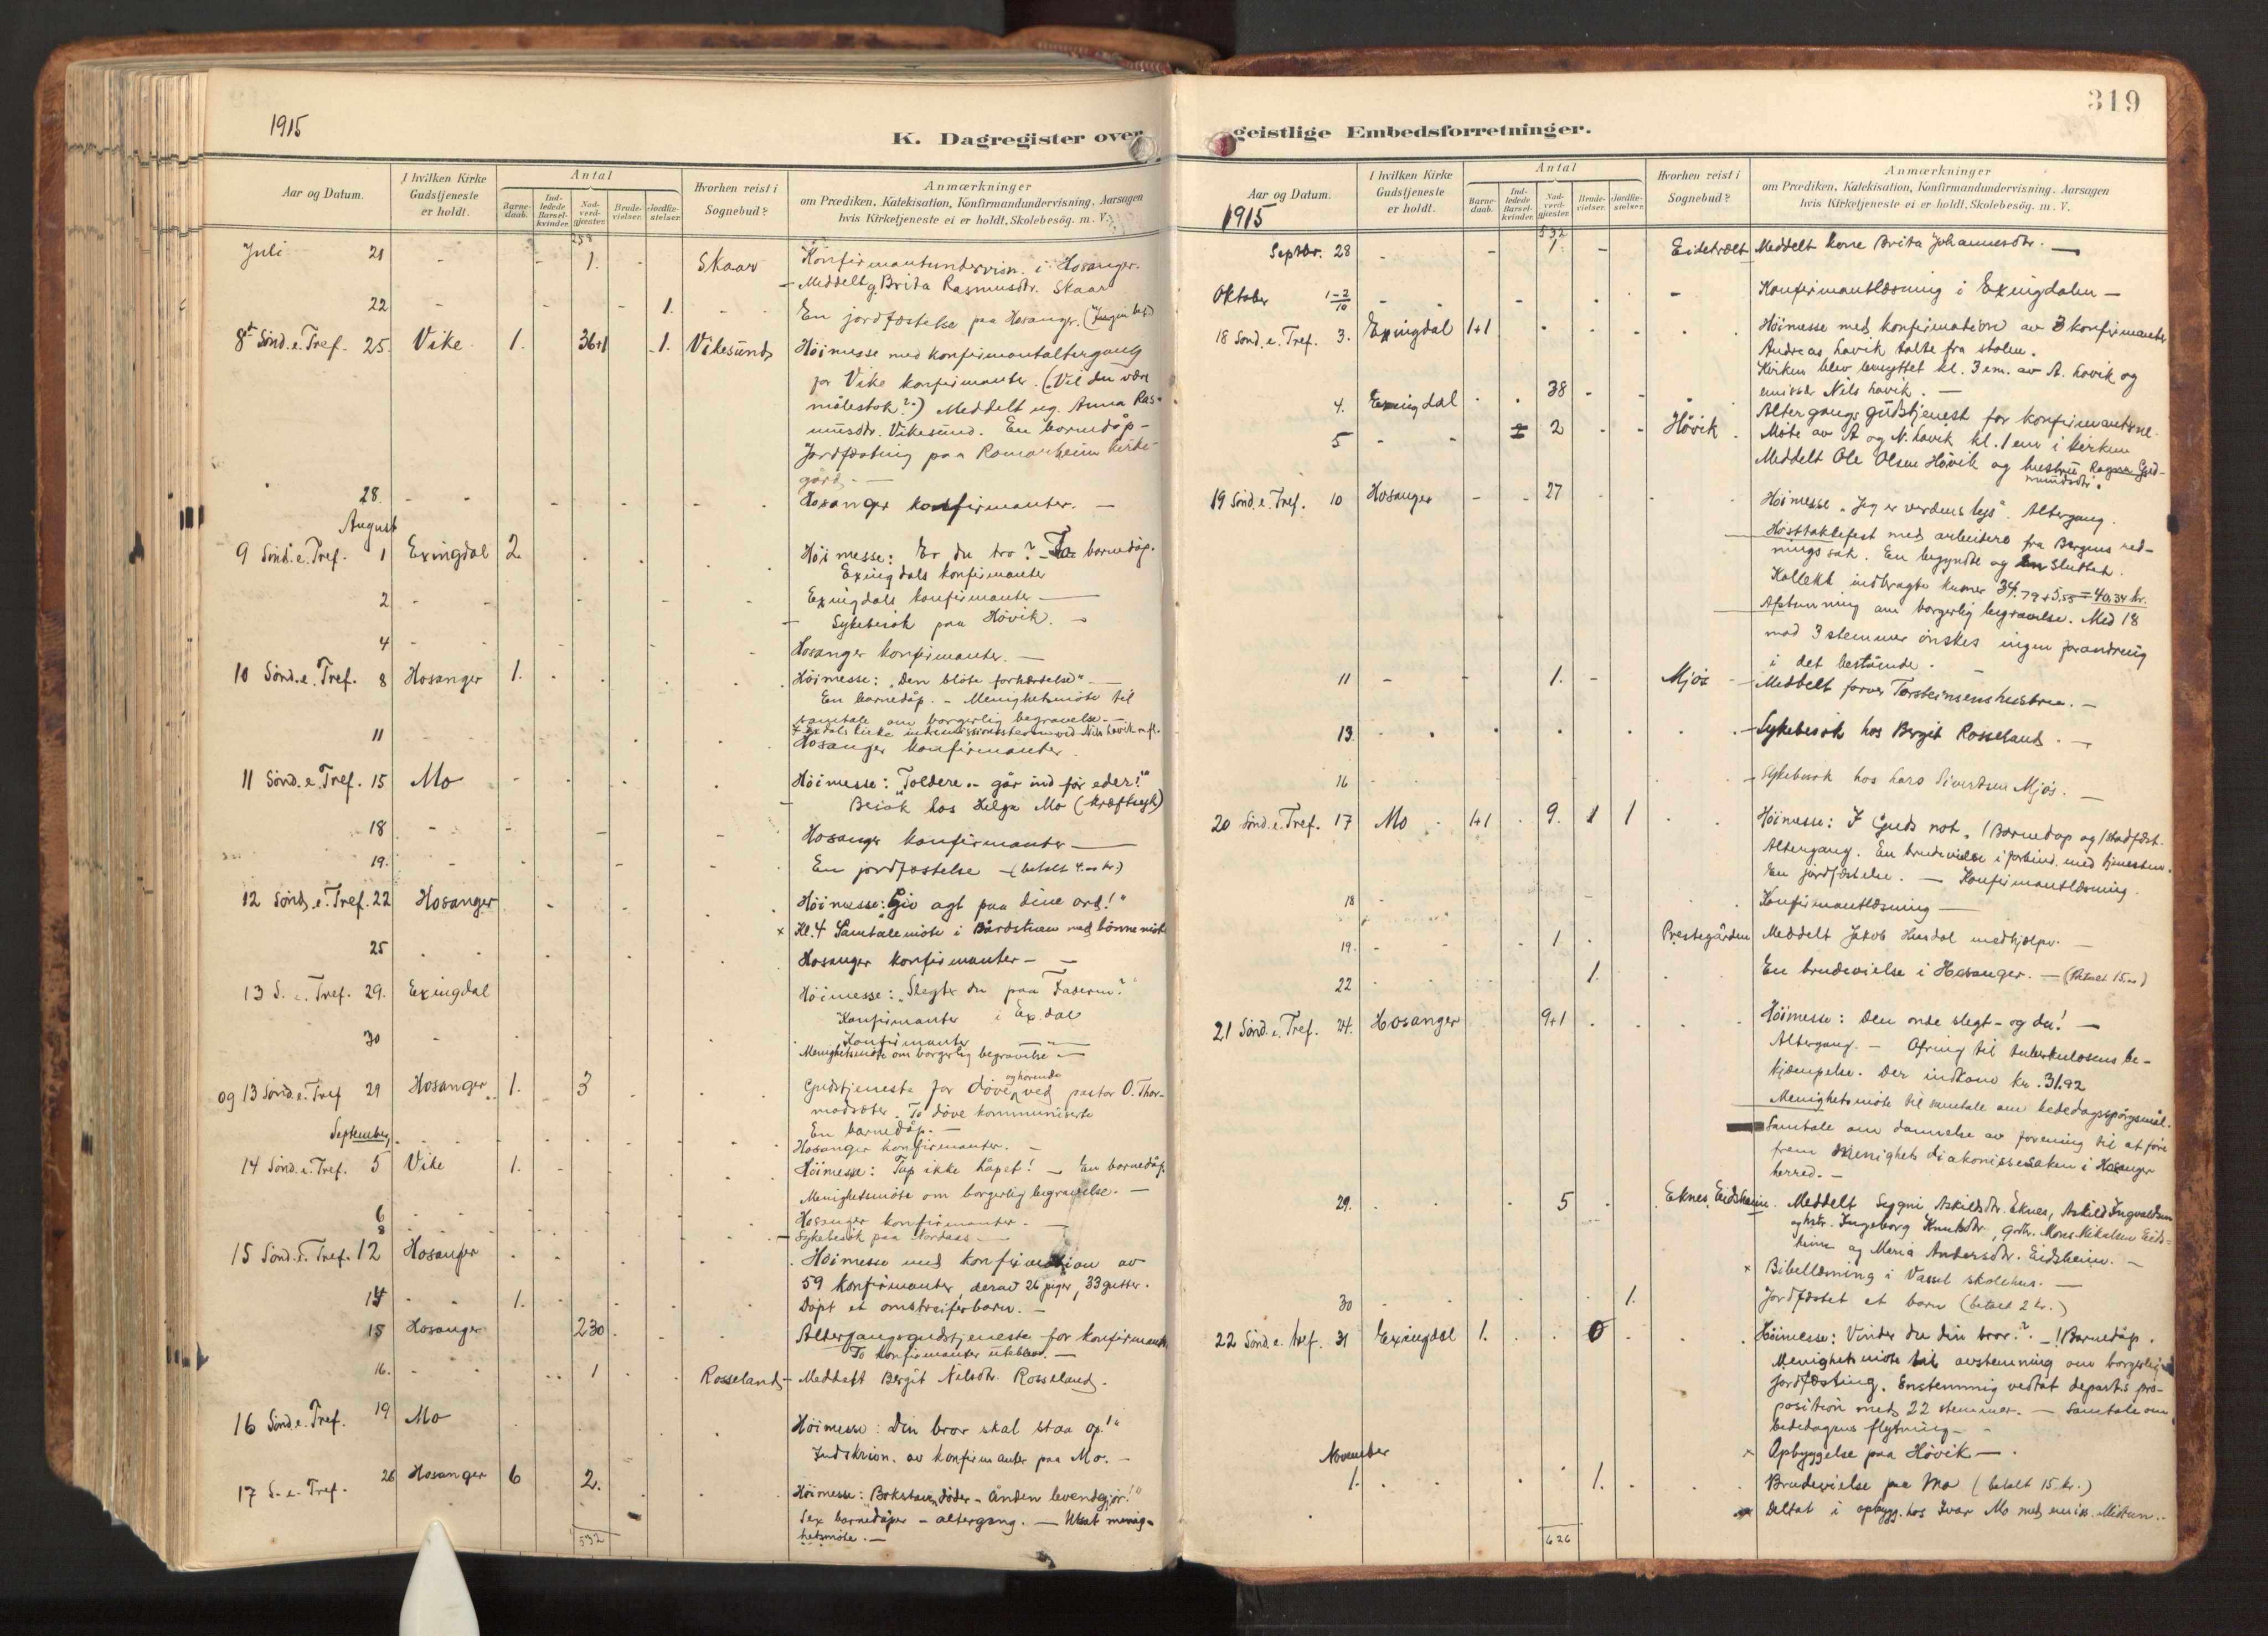 1915
K. Dagregister over
Aar og Datum.
I hvilken Kirke Gudstjeneste er holdt.
Antal
Barnedaab.
Indledede Barselkvinder.
Nadverdgjæster.
Brudevielser.
Jordfæstelser.
Hvorhen reist i Sognebud?
Anmærkninger
om Prædiken, Katekisation, Konfirmandundervisning, Aarsagen
hvis Kirketjeneste ei er holdt, Skolebesög. m. V.
258
Juli 21 - - 1. - Skaar Konfirmantundervisn. i Hosanger.
Meddelt g. Brita Rasmusdtr. Skaar
22 - - - 1. - En jordfæstelse paa Hosanger.
8de Sönd. e. Tref. 25. Vike 1. 36+1 1. Vikesund Höimesse med konfirmantaltergang
for Vike konfirmanter. (Vil du være
målestok?) Meddelt ug. Anna Ras-
musdtr. Vikesund. En barnedåp -
Jordfæsting paa Romarheim kirke-
gård. -
28. - - Hosanger konfirmanter. -
August
9 Sönd. e. Tref. 1 Exingdal 2 Höimesse: Er du tro? - To barnedåp.
Exingdals konfirmanter
2 - - Exingdals konfirmanter -
Sykebesök paa Hövik. -
4 - - Hosanger konfirmanter. -
10 Sönd. e. Tref. 8 Hosanger 1. Höimesse: "Den blöte forhærdelse" -
En barnedåp. - Menighetsmöte til
samtale om borgerlig begravelse. -
11 Hosanger konfirmanter.
11 Sönd. e. Tref. 15 Mo - Höimesse: "Toldere - går ind för eder!"
Besök hos Helga Mo (kræftsyk)
18 - - Hosanger konfirmanter -
19. - - En jordfæstelse - (betalt 4.00 kr.)
12 Sönd. e. Tref. 22 Hosanger Höimesse: Giv agt paa dine ord!"
x Kl. 4 Samtalemöte i Bårdstuen med bönnemöte
25 Hosanger konfirmanter - -
13 S. e. Tref. 29. Exingdal Höimesse: "Slegter du paa Faderen?"
Konfirmanter i Ex.dal
30 Konfirmanter -"-
Menighetsmöte om borgerlig begravelse -
og 13 Sönd. e. Tref 29 Hosanger 1. 3 Gudstjeneste for döve og hörende ved pastor O. Thor-
modsæter. To döve kommuniserte
En barnedåp. -
September, Hosanger konfirmanter. -
14 Sönd. e. Tref. 5 Vike 1. Höimesse: Tap ikke håpet! - En barnedåp.
Menighetsmöte om borgerlig begravelse. -
6 Hosanger konfirmanter. -
8 Sykebesök paa Nordaas -
15 Sönd. e. Tref. 12 Hosanger Höimesse med konfirmation av
59 konfirmanter, derav 26 piger, 33 gutter.
14 1. Döpt et omstreiferbarn. -
15 Hosanger 230 Altergangsgudstjeneste for konfirmanter.
To konfirmanter uteblev. -
16. - - 1 Rosseland - Meddelt Bergit Nilsdtr. Rosseland.
16 Sönd e. Tref. 19 Mo Höimesse: Din bror skal staa op!"
Indskrivn. av konfirmanter paa Mo. -
17 S. e. Tref. 26 Hosanger 6 2. Höimesse: Bokstaven döder - Ånden levendegjör!"
Sex barnedåper - altergang. - Utsat menig-
hetsmöte. -
532
319
geistlige Embedsforretninger.
Aar og Datum.
I hvilken Kirke Gudstjeneste er holdt.
Antal
Barnedaab.
Indledede Barselkvinder.
Nadverdgjæster.
Brudevielser.
Jordfæstelser.
Hvorhen reist i Sognebud?
Anmærkninger
om Prædiken, Katekisation, Konfirmandundervisning, Aarsagen
hvis Kirketjeneste ei er holdt, Skolebesög. m. V.
1915
532
Septbr. 28 - - 1. - Eidetræet Meddelt kone Brita Johannesdtr. -
Oktober 1-2/10 - - Konfirmantlæsning i Exingdalen -
18 Sönd. e. Tref. 3. Exingdal 1+1 Höimesse med konfirmation av 3 konfirmanter
Andreas Lavik talte fra stolen.
Kirken blev benyttet kl. 3 em. av A. Lavik og
emissær Nils Lavik. -
4. Exingdal 38 Altergangsgudstjenest for konfirmanterne.
Möte av A og N. Lavik kl. 1 em i kirken
5 - - 2 Hövik Meddelt Ole Olsen Hövik og hustru Ragna Gud-
mundsdtr.
19 Sönd. e. Tref. 10 Hosanger - - 27 Höimesse "Jeg er verdens lys". Altergang.
Hösttakkefest med arbeidere fra Bergens red-
ningssak. En begyndte og en sluttet.
Kollekt indbragte kroner 34.79+5,55=40,34 kr.
Afstemning om borgerlig begravelse. Med 18
mod 3 stemmer önskes ingen forandring
i det bestående. -
11 - - 1. - Mjös Meddelt forver Torsteinsens hustru. -
13. Sykebesök hos Bergit Rosseland. -
16 Sykebesök hos Lars Sivertsen Mjös. -
20 Sönd. e. Tref. 17 Mo 1+1 9. 1 1 Höimesse: I Guds not. 1 Barnedåp og 1 stadfæst.
Altergang. En brudevielse i forbind. med tjenesten.
En jordfæstelse. - Konfirmantlæsning.
18 Konfirmantlæsning -
19. 1 Prestegården Meddelt Jakob Husdal medhjelper. -
22 1. En brudevielse i Hosanger. - (Betalt 15.00)
21 Sönd. e. Tref. 24. Hosanger 9+1 Höimesse: Den onde slegt - og du! -
Altergang. - Ofring til tuberkulosens be-
kjæmpelse. Der indkom kr. 31.92
Menighetsmöte til samtale om bededagsspörgsmål.
Samtale om dannelse av forening til at före
frem Menighets diakonissesaken i Hosanger
herred. -
29. 5 Eknes, Eidsheim Meddelt Seggni Askildsdtr. Eknes, Askild Ingvaldsen
og hstr. Ingeborg Knutsdtr, Gdbr. Mons Mikalsen Eids-
heim og Maria Andersdtr. Eidsheim. -
x Bibellæsning i Vassel skolehus. -
30 1. Jordfæstet et barn (betalt 2 kr.)
22 Sönd. e. tref. 31 Exingdal 1. 0 Höimesse: Vinder du din bror? - 1 Barnedåp.
Menighetsmöte til avstemning om borgerlig
jordfæsting. Enstemmig vedtat departs pro-
position med 22 stemmer. - Samtale om
bededagens flytning. -
x Opbyggelse paa Hövik -
November
1. 1. Brudevielse paa Mo (betalt 15 kr.)
x Deltat i opbygg. hos Ivar Mo med emiss.
626